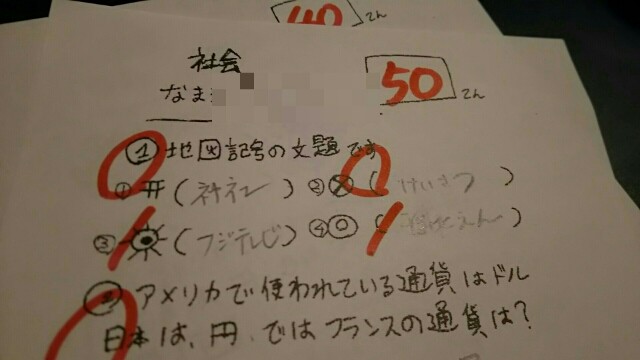 40 てん
社会 50 てん
なまえ
① 地図記号の文題です
① 开 (神社) ② ⊗ (けいさつ)
③ (フジテレビ) ④ ◎ (えん)
② アメリカで使われている通貨はドル
日本は、円、ではフランスの通貨は?